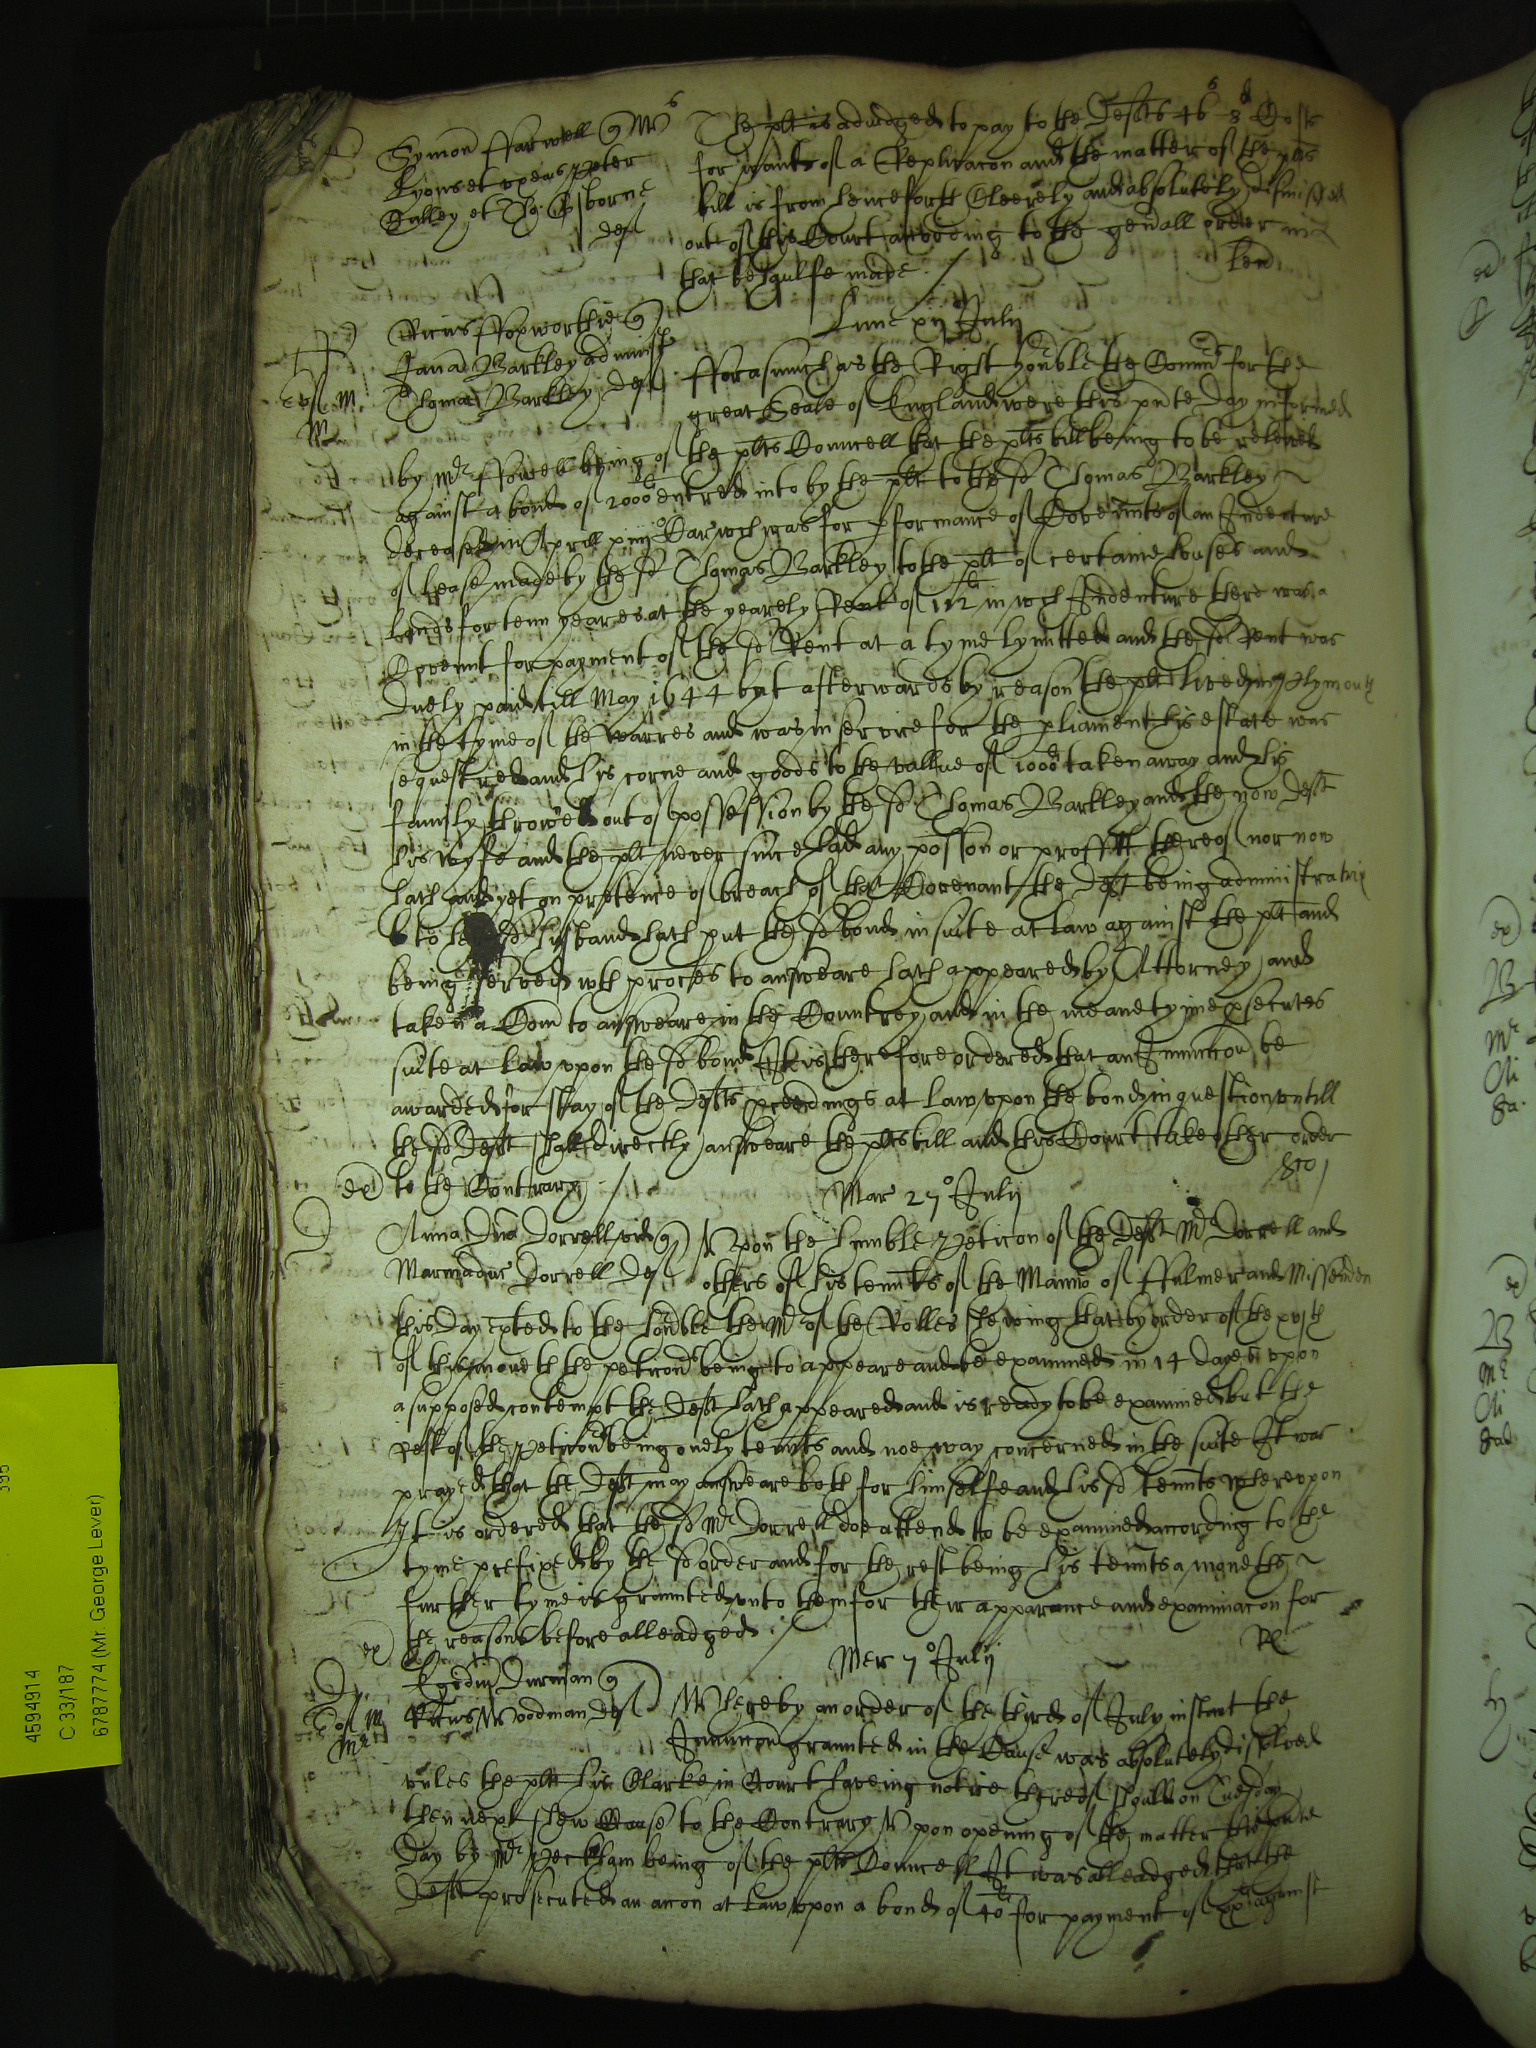 Symon Farwell
Lyons et uxor Peter
Culley et Osborne
def
The plt is adiudged to pay to the Defts 46s 8d Costs
for want of a Replicacon and the matter of the plts
bill is from henceforth Cleerely and absolutely dismissed
out of this Court according to the genall order in
that behaulfe made
Lune xij July
Ricus Foxworthie
Jana Barkley administ
Thomae Barkley def
Forasmuch as the Right honble the Comrs for the
great Seale of England were this pnte day informed
by Mr Fowell being of the plts Councell that the plts bill being to be releived
against a bond of 2000li entred into by the plt to the sd Thomas Barkley
deceased in Aprill xiiij Car wch was for pformance of Covennts of an Indenture
of lease made by the sd Thomas Barkley to the plt of certaine houses and
lands for tenn yeares at the yearely Rent of 112li in wch Indenture there was a
Covennt for payment of the sd Rent at a tyme lymitted and the sd Rent was
duely paid till May 1644 but afterwards by reason the plt lived in Plymouth
in the tyme of the warres and was in service for the pliament his estate was
sequestred and his corne and goods to the vallue of 1000li taken away and his
family throwed out of possession by the sd Thomas Barkley and the now deft
his wyfe and the plt never since had any possion or proffitt thereof nor now
hath and yet on pretence of breach of that Covenant the Deft being administratrix
to her sd husband hath put the sd bond in suite at law against the plt and
being served wth proces to answeare hath appeared by Attorney and
taken a Com to answeare in the Countrey and in the meane tyme psecutes
suite at law upon the sd bond It is therefore ordered that an Iniunccon be
awarded for stay of the Defts pceedings at law upon the bond in question untill
the sd Deft shall directly answeare the plts bill and this Court take other order
to the Contrary
Mar 27o July
Anna Dna Dorrell vid
Marmaduc Dorrell def
Upon the humble Peticon of the Deft Mr Dorrell and
others of his tennts of the Mannor of Fulmer and Missenden
this day pnted to the honble the Mr of the Rolles shewing that by order of the xvjth
of this moneth the peticoners being to appeare and be examined in 14 dayes upon
a supposed contempt the Deft hath appeared and is ready to be examined but the
rest of the peticoners being onely tennts and noe way concerned in the suite It was
prayed that the Deft may answeare both for himselfe and his sd tennts Whereupon
It is ordered that the sd Mr Dorrell doe attend to be examined according to the
tyme prefixed by the sd order and for the rest being his tennts a moneth
further tyme is graunted unto them for their apparance and examinacon for
the reasons before alleadged
Mer 7o July
Egedius Durman
Ricus Woodman def
Whereby an order of the third of July instant the
Iniunccon graunted in the Cause was absolutely dissolved
unles the plt his Clarke in Court haveing notice thereof should on Tuesday
then next shew Cause to the Contrary Upon opening of the matter this pnte
day by Mr Peckham being of the plts Councell It was alleadged that the
Deft prosecuted an accon at law upon a bond of 40li for payment of xxli against
4594914
C 33/187
6787774 (Mr. George Lever)